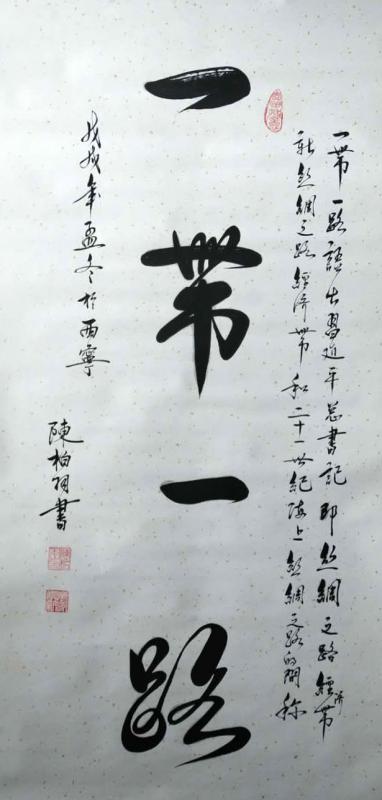 一帶一路語出習近平总書記即丝綢之路經济帶
新絲綢之路經济帶和二十一世紀海上絲綢之路的簡称
一帶一路
戊戌年孟冬於西寧
陳柏 書